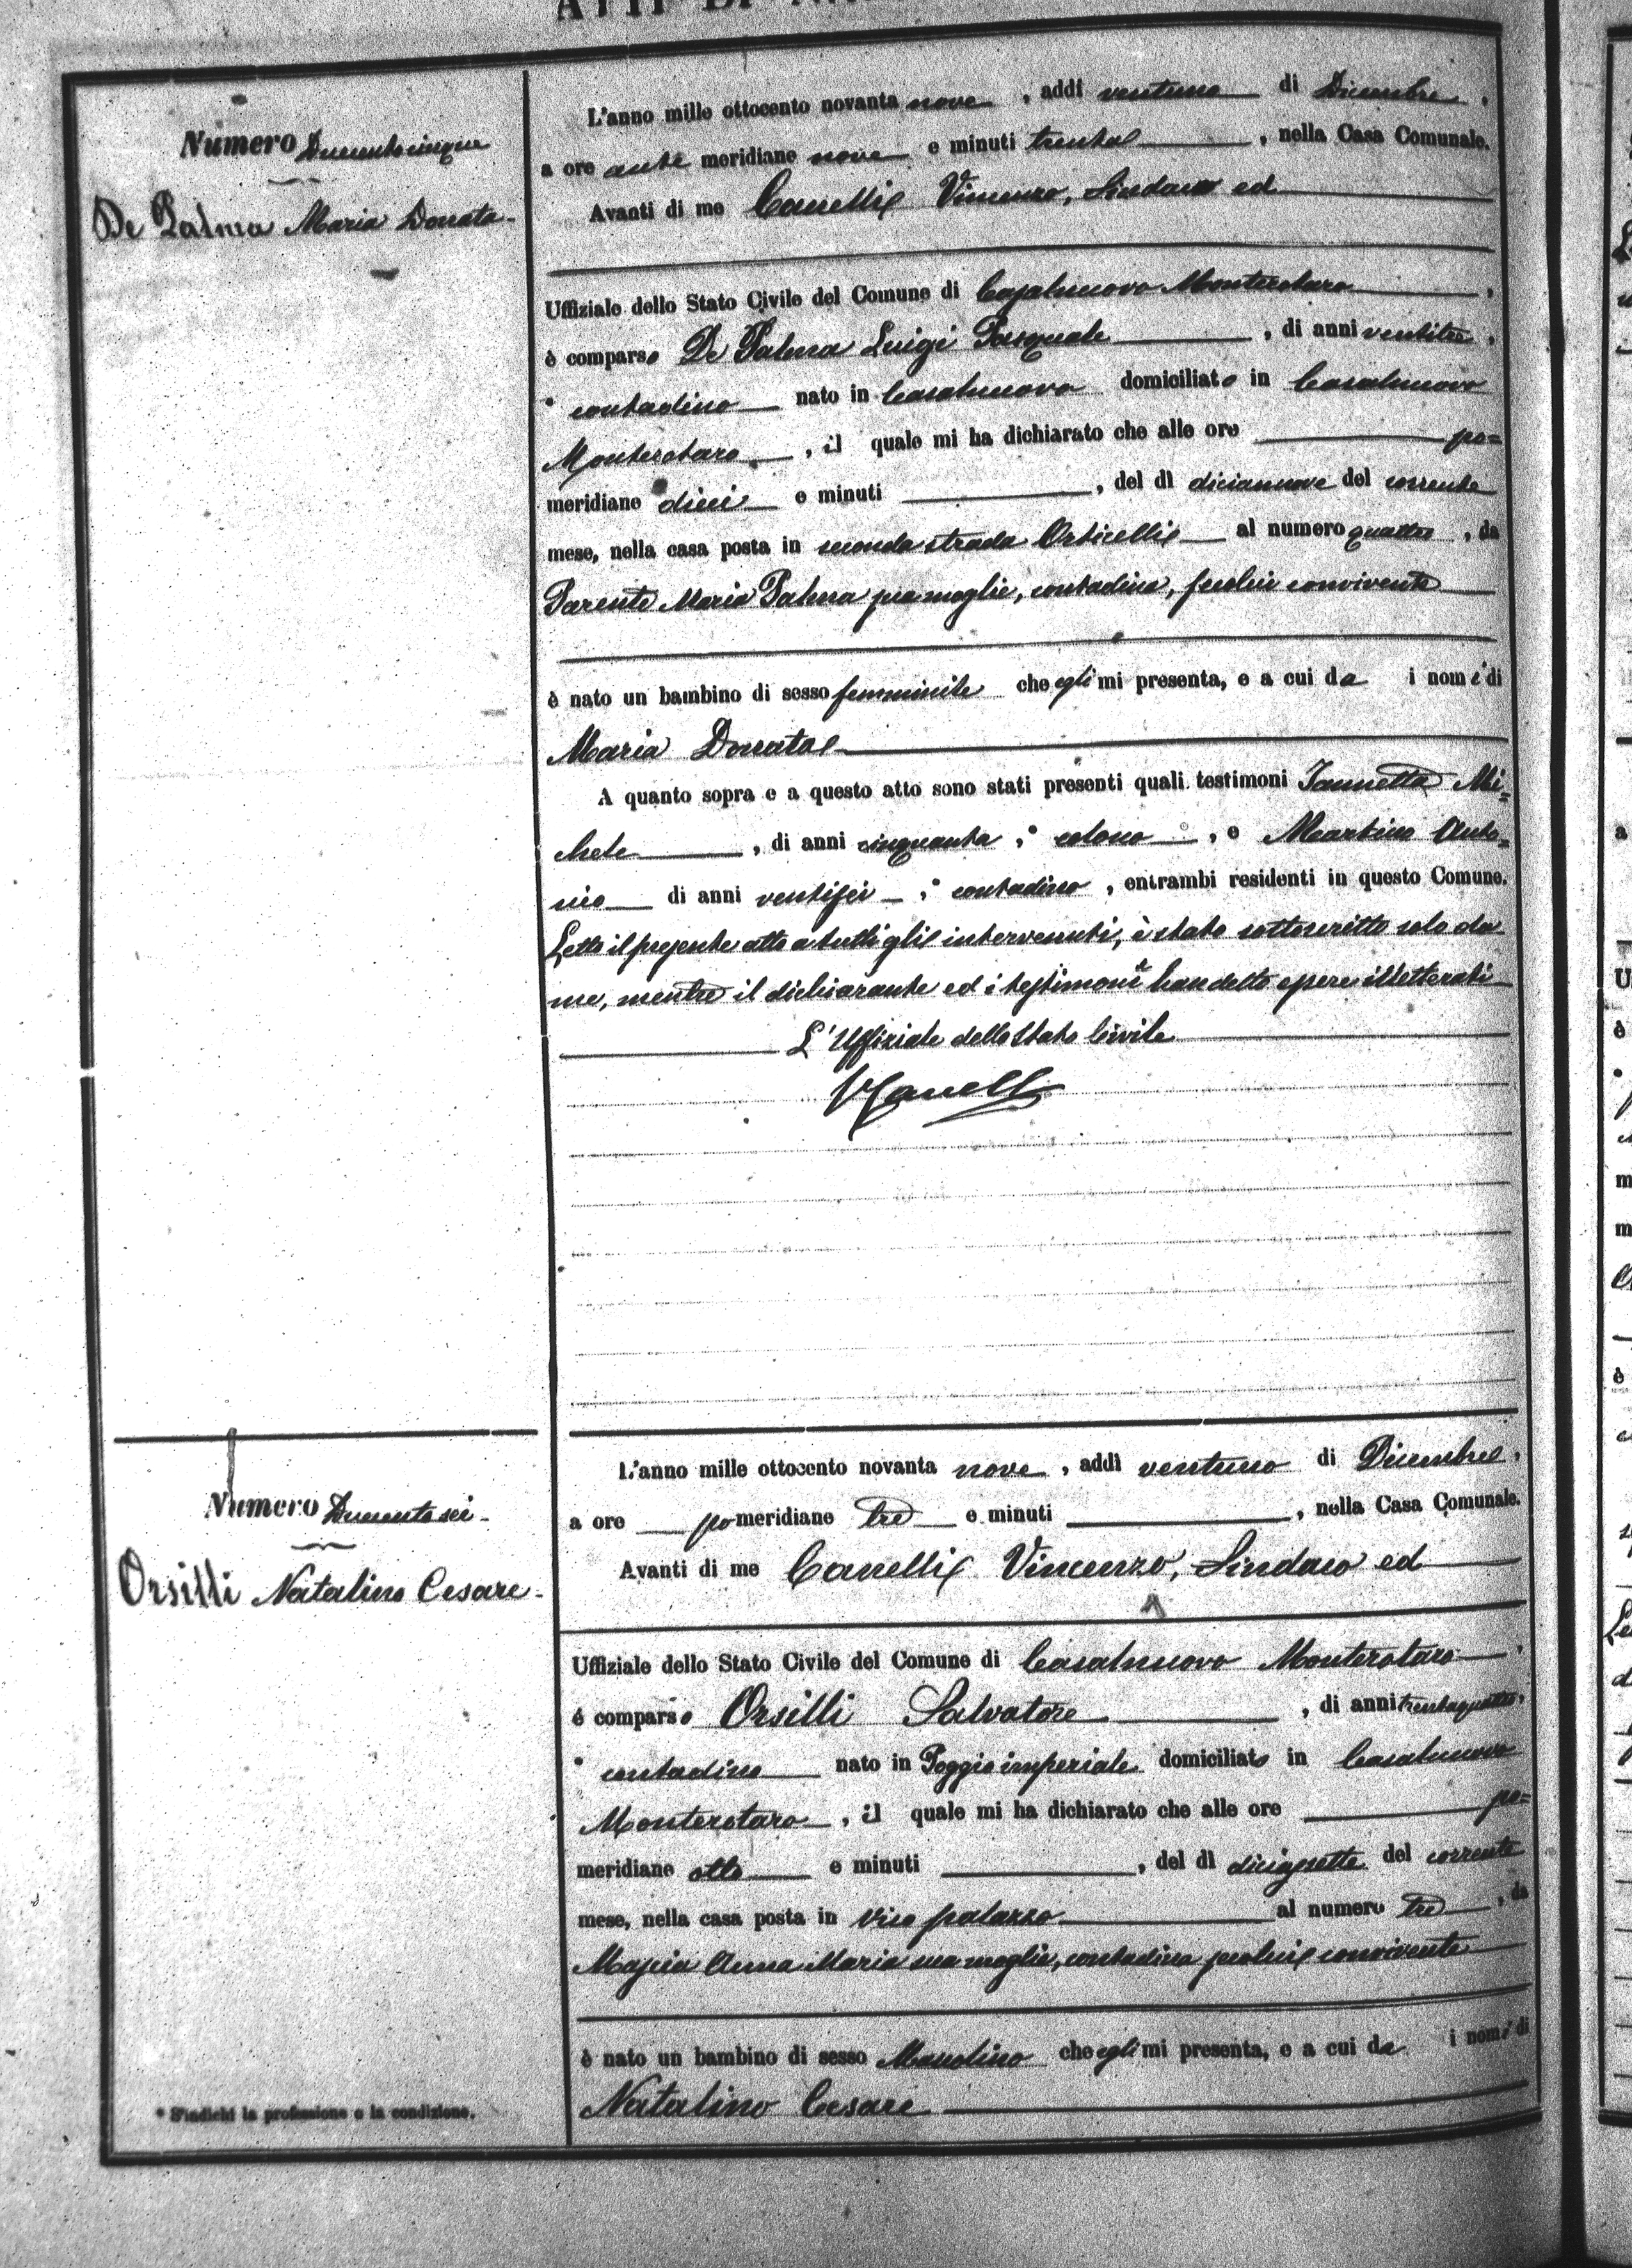 ATTI DI
Numero Duecentocinque
De Palma Maria Donata
L'anno mille ottocento novanta nove, addì ventuno di Dicembre,
a ore anti meridiane nove e minuti trenta, nella Casa Comunale.
Avanti di me Canelli Vincenzo, Sindaco ed
Uffiziale dello Stato Civile del Comune di Casalnuovo Monterotaro,
è comparso De Palma Luigi Pasquale, di anni ventitre,
* contadino nato in Casalnuovo domiciliato in Casalnuovo
Monterotaro, il quale mi ha dichiarato che alle ore po=
meridiane dieci e minuti, del dì diciannove del corrente
mese, nella casa posta in seconda strada Orticelli al numero quattro, da
Parente Maria Palma sua moglie, contadina, seco lui convivente
è nato un bambino di sesso femminile che egli mi presenta, e a cui da i nomi di
Maria Donata
A quanto sopra e a questo atto sono stati presenti quali testimoni Iannetta Mi=
chele, di anni cinquanta, * colono, e Martino Anto=
nio di anni ventisei, * contadino, entrambi residenti in questo Comune.
Letto il presente atto a tutti gli intervenuti, è stato sottoscritto solo da
me, mentre il dichiarante ed i testimoni han detto essere illetterati
L'Uffiziale dello Stato Civile
VCanelli
Numero Duecentosei
Orsilli Natalino Cesare
L'anno mille ottocento novanta nove, addì ventuno di Dicembre,
a ore pomeridiane tre e minuti, nella Casa Comunale.
Avanti di me Canelli Vincenzo, Sindaco ed
Uffiziale dello Stato Civile del Comune di Casalnuovo Monterotaro,
è comparso Orsilli Salvatore, di anni trentaquattro,
* contadino nato in Poggio imperiale domiciliato in Casalnuovo
Monterotaro, il quale mi ha dichiarato che alle ore po=
meridiane otto e minuti, del dì diciassette del corrente
mese, nella casa posta in vico palazzo al numero tre, da
Anna Maria sua moglie, contadina seco lui convivente
è nato un bambino di sesso Mascolino che egli mi presenta, e a cui da i nomi di
Natalino Cesare
* S'indichi la professione o la condizione.